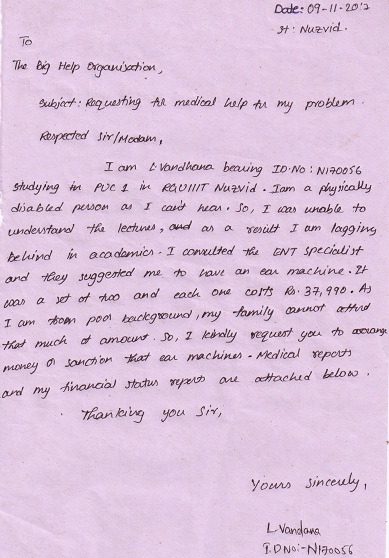 Date: 09-11-2017
st: Nuzvid.
To
The Big Help Organisation,
Subject: Requesting for medical help for my problem.
Respected Sir/Madam,
I am L.Vandhana bearing ID.No: N170056
studying in PUC 1 in RGUIIIT Nuzvid. I am a physically
disabled person as I can't hear. So, I was unable to
understand the lectures, and as a result I am lagging
behind in academics. I consulted the ENT specialist
and they suggested me to have an ear machine. It
was a set of two and each one costs Rs. 37,990. As
I am from poor background, my family cannot afford
that much of amount. So, I kindly request you to arrange
money or sanction that ear machines. Medical reports
and my financial status reports are attached below.
Thanking you Sir,
Yours sincerely,
L.Vandana
I.DNo:-N170056